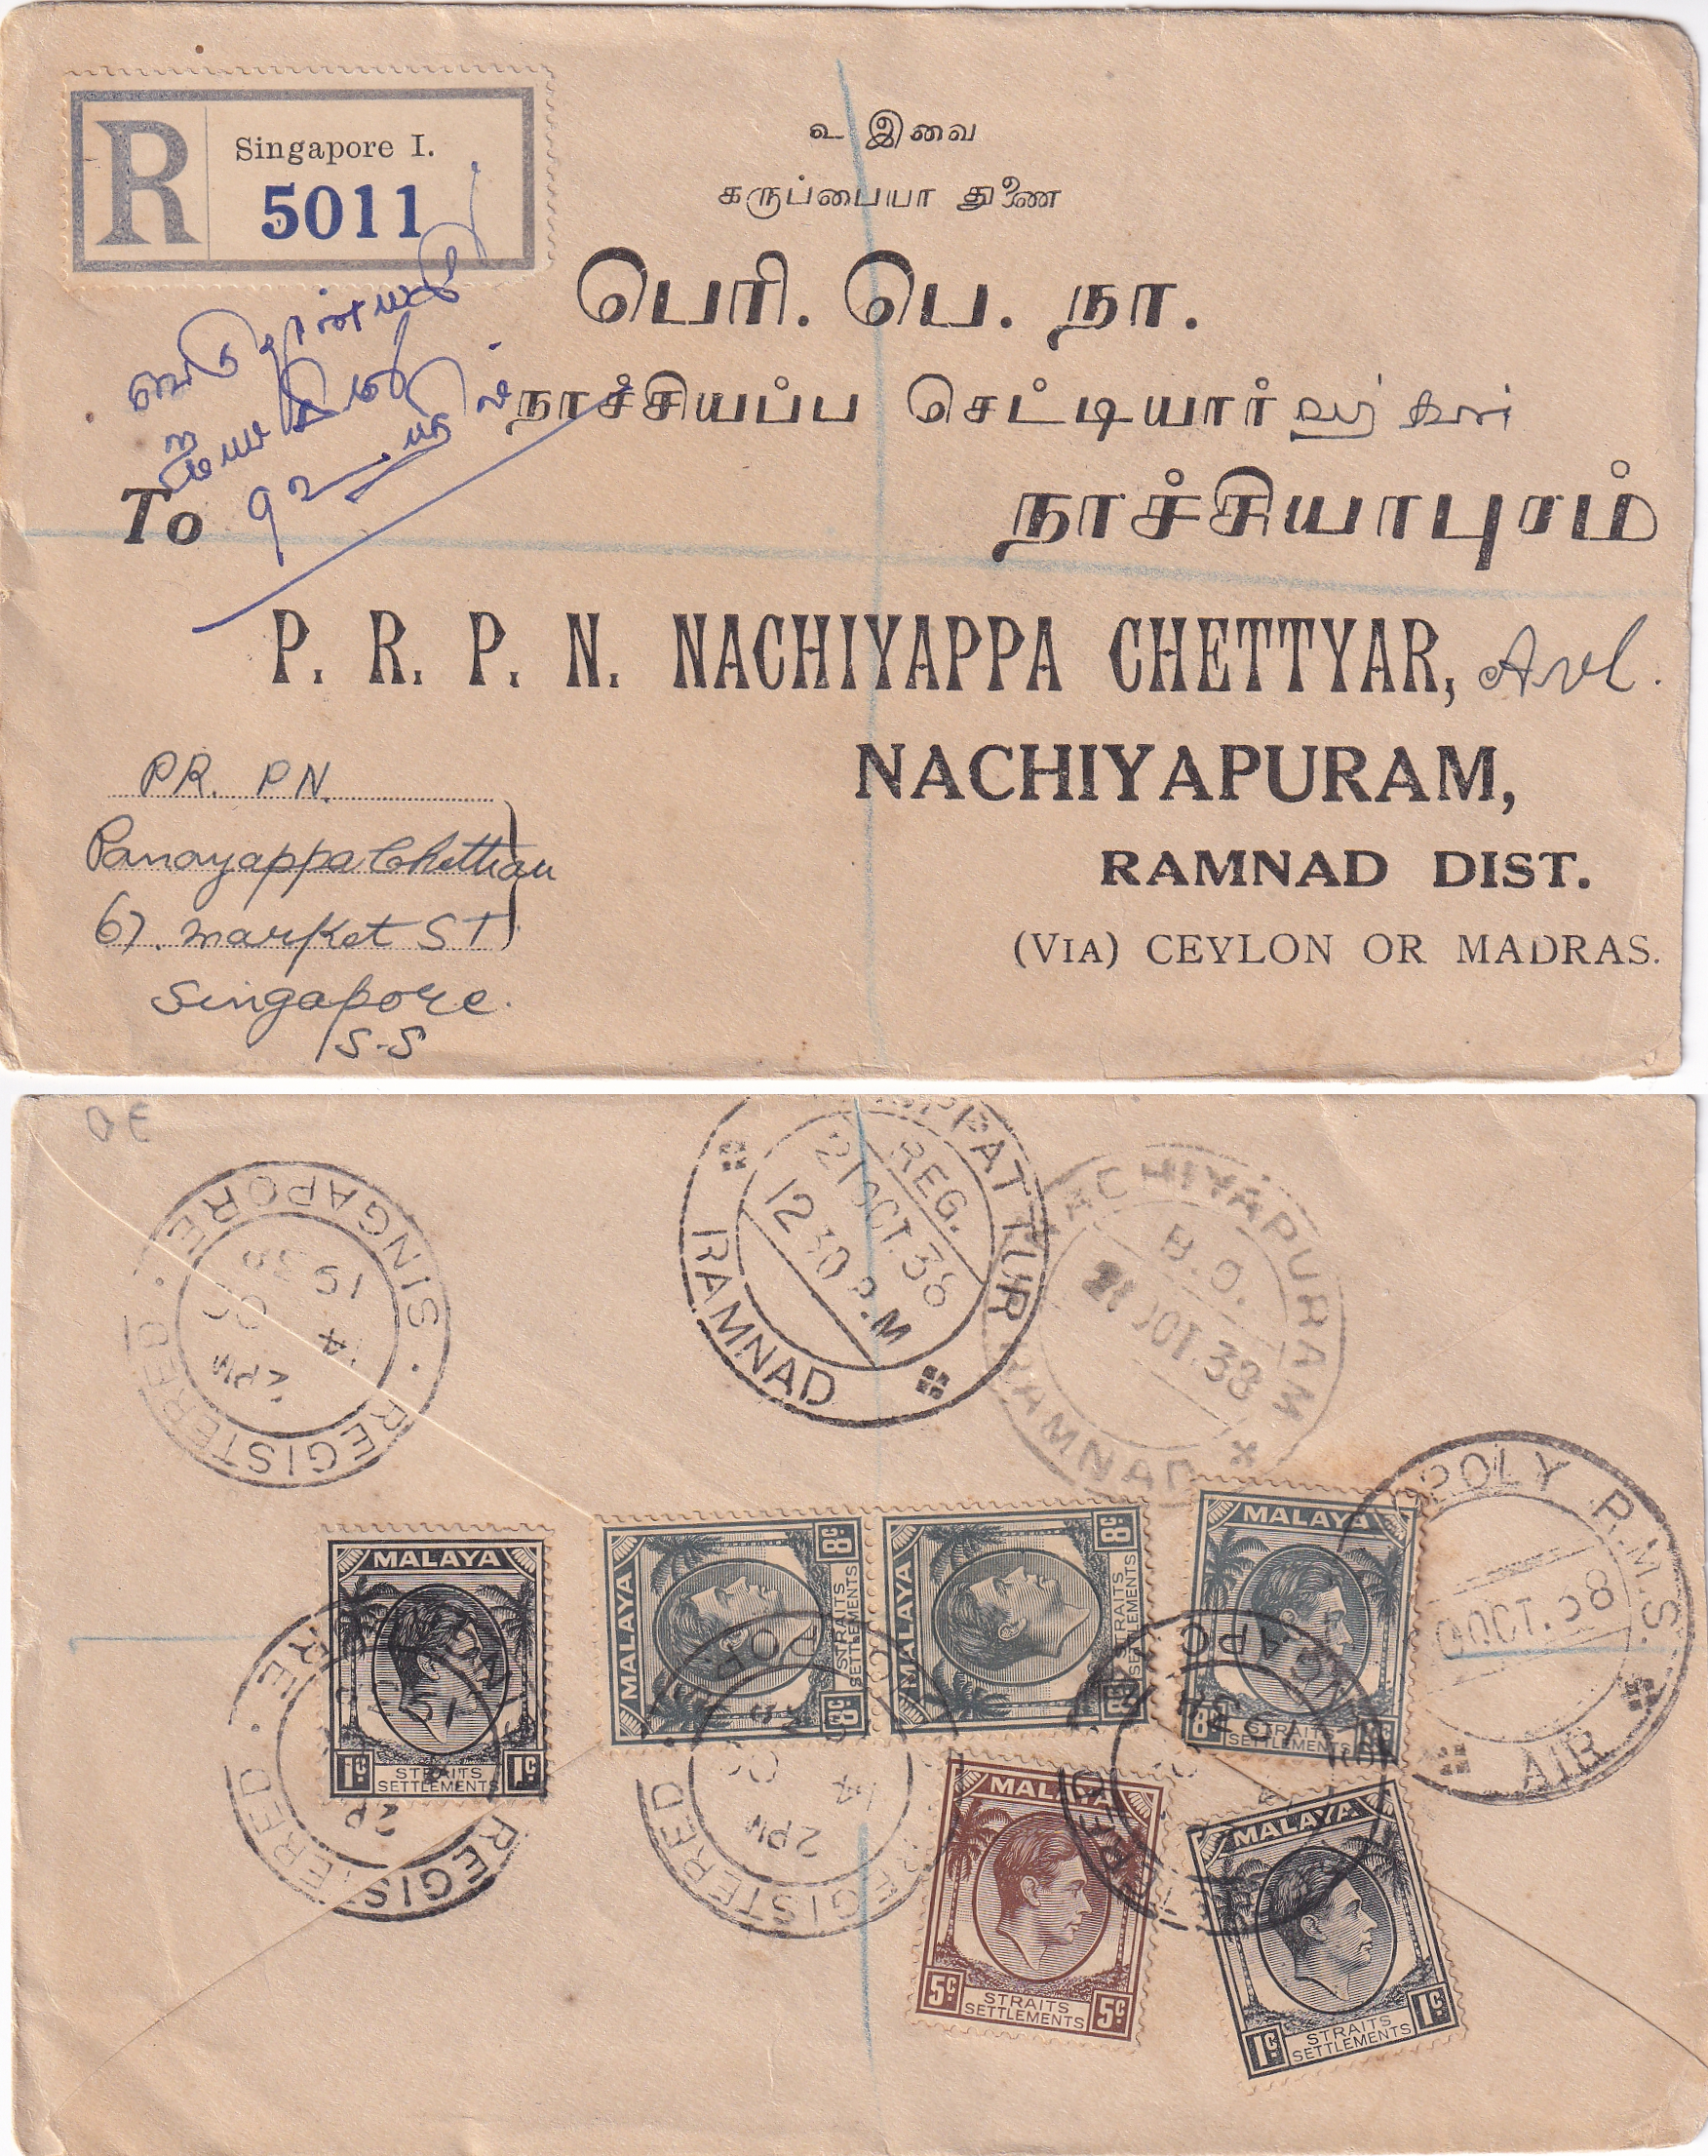 R
Singapore I.
5011
உ இவை
கருப்பையா துணை
பெரி. பெ. நா.
நாச்சியப்ப செட்டியார்
நாச்சியாபுரம்
To
P. R. P. N. NACHIYAPPA CHETTYAR, Avl.
NACHIYAPURAM,
RAMNAD DIST.
(VIA) CEYLON OR MADRAS.
PR. PN.
Panayappa Chettiar
67. Market ST
Singapore.
S.S
REGISTERED · SINGAPORE
2PM
14 OC
1938
REG.
21 OCT. 38
12 30 P.M
RAMNAD
NACHIYAPURAM
B.O.
21 OCT. 38
RAMNAD
POLY R.M.S.
OCT. 38
AIR
MALAYA
1c. 1c.
STRAITS SETTLEMENTS
MALAYA
8c. 8c.
STRAITS SETTLEMENTS
MALAYA
8c. 8c.
STRAITS SETTLEMENTS
MALAYA
8c.
STRAITS SETTLEMENTS
MALAYA
5c. 5c.
STRAITS SETTLEMENTS
MALAYA
1c. 1c.
STRAITS SETTLEMENTS
REGISTERED
2PM
14 OC
REGISTERED